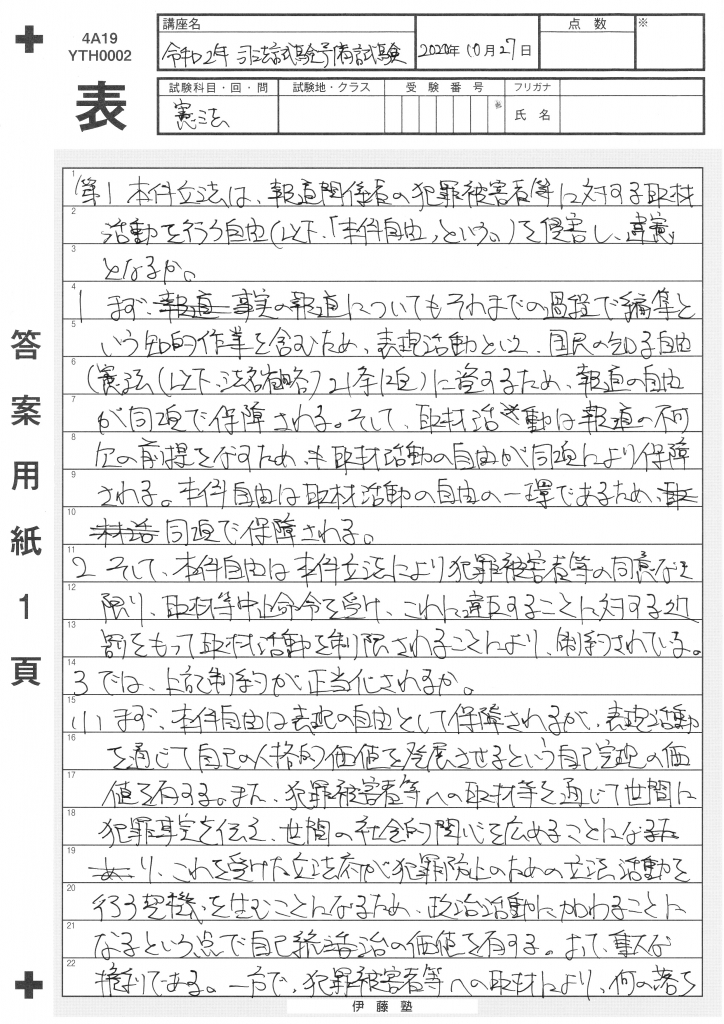 4A19
YTH0002
表
講座名
令和2年 司法試験予備試験
2020年10月27日
点数
※
試験科目・回・問
憲法
試験地・クラス
受験番号
フリガナ
氏名
答案用紙1頁
1 第1 本件立法は、報道関係者の犯罪被害者等に対する取材
2 活動を行う自由(以下、「本件自由」という。)を侵害し、違憲
3 とならないか。
4 1 まず、報道 事実の報道についてもそれまでの過程で編集と
5 いう知的作業を含むため、表現活動といえ、国民の知る自由
6 (憲法(以下、法名省略)21条1項)に資するため、報道の自由
7 が同項で保障される。そして、取材活動は報道の不可
8 欠の前提をなすため、取材活動の自由が同項により保障
9 される。本件自由は取材活動の自由の一環であるため、取
10 材活 同項で保障される。
11 2 そして、本件自由は本件立法により犯罪被害者等の同意なき
12 限り、取材等中止命令を受け、これに違反することに対する処
13 罰をもって取材活動を制限されることにより、制約されている。
14 3 では、上記制約が正当化されるか。
15 (1) まず、本件自由は表現の自由として保障されるが、表現活動
16 を通じて自己の人格的価値を発展させるという自己実現の価
17 値を有する。また、犯罪被害者等への取材等を通じて世間に
18 犯罪事実を伝え、世間の社会的関心を広めることになるた
19 り、これを受けた立法府が犯罪防止のための立法活動を
20 行う契機を生むことになるため、政治活動にかかわることに
21 なるという点で自己統治の価値を有する。よって、重大な
22 権利である。一方で、犯罪被害者等への取材により、何の落ち
伊藤塾